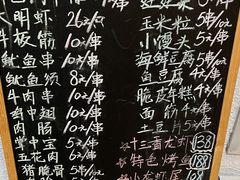 明虾 26元/串
牛板筋 10元/串
鱿鱼串 10元/串
鱿鱼须 8元/串
牛肉串 10元/串
鸡中翅 10元/串
肉肠 10元/串
掌中宝
五花肉 6元/串
猪脆骨
玉米粒 4元/串
小馒头 5元/串
海鲜豆腐 5元/串
鱼豆腐 5元/串
脆皮年糕
面筋 5元/串
土豆片 5元/串
十三香龙虾 138
特色烤鱼 188
小龙虾尾